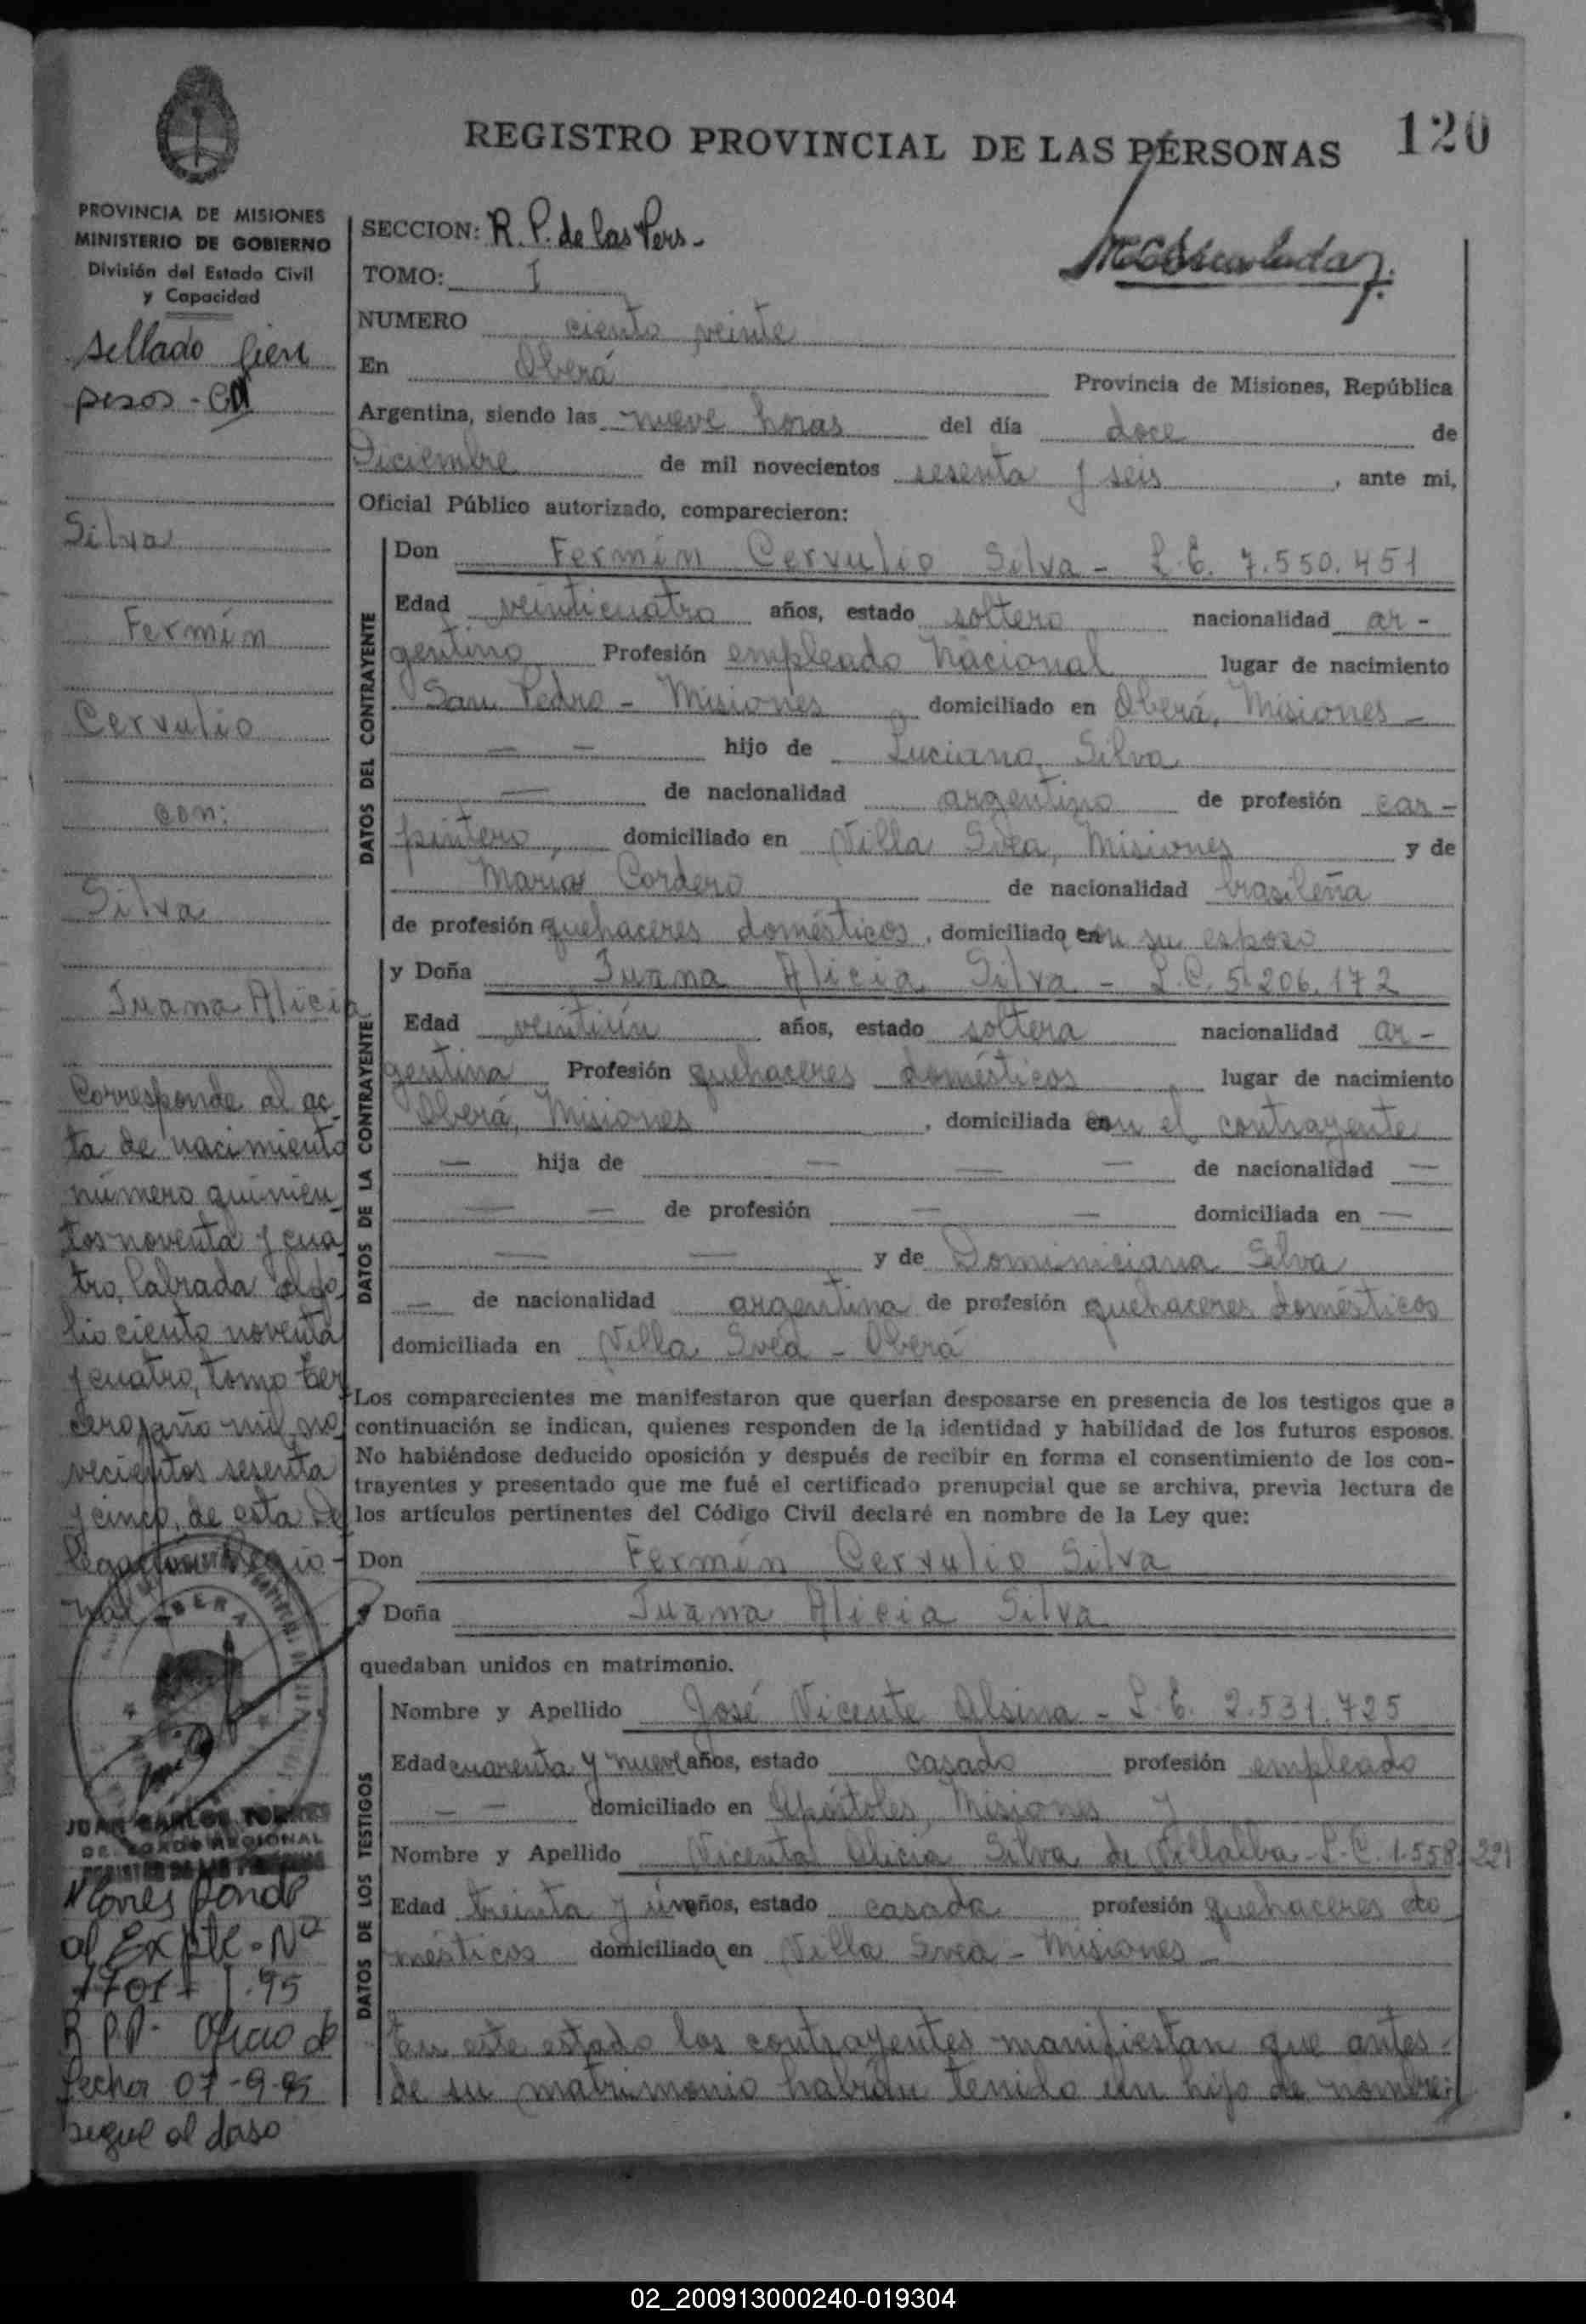 REGISTRO PROVINCIAL DE LAS PERSONAS 120
PROVINCIA DE MISIONES
MINISTERIO DE GOBIERNO
División del Estado Civil
y Capacidad
sellado cien
pesos -
Silva
Fermín
Cervulio
con:
Silva
Juana Alicia
Corresponde al ac-
ta de nacimiento
número quinien
tos noventa y cua
tro, labrada al fo
lio ciento noventa
y cuatro, tomo ter
cero, año mil no
vecientos sesenta
y cinco, de esta De
legación Regio-
nal
OBERA
JUAN CARLOS TORRES
DELEGADO REGIONAL
REGISTRO DE LAS PERSONAS
Corresponde
al Expte. Nº
95
R.P.P. Oficio de
fecha 07-9-95
sigue al dorso
SECCION: R. P. de las Pers.
TOMO: I
NUMERO ciento veinte
En Oberá Provincia de Misiones, República
Argentina, siendo las nueve horas del día doce de
Diciembre de mil novecientos sesenta y seis, ante mi,
Oficial Público autorizado, comparecieron:
DATOS DEL CONTRAYENTE
Don Fermín Cervulio Silva - L.E. 7.550.451
Edad veinticuatro años, estado soltero nacionalidad ar-
gentino Profesión empleado Nacional lugar de nacimiento
San Pedro - Misiones, domiciliado en Oberá, Misiones -
— — hijo de Luciano Silva
— de nacionalidad argentino de profesión car-
pintero, domiciliado en Villa Svea, Misiones y de
María Cordero de nacionalidad brasileña
de profesión quehaceres domésticos, domiciliado con su esposo
DATOS DE LA CONTRAYENTE
y Doña Juana Alicia Silva - L.C. 5.206.172
Edad veintiún años, estado soltera nacionalidad ar-
gentina Profesión quehaceres domésticos lugar de nacimiento
Oberá, Misiones, domiciliada con el contrayente
— hija de — — — de nacionalidad —
— — de profesión — — domiciliada en —
— — y de Dominiciana Silva
— de nacionalidad argentina de profesión quehaceres domésticos
domiciliada en Villa Svea - Oberá
Los comparecientes me manifestaron que querían desposarse en presencia de los testigos que a
continuación se indican, quienes responden de la identidad y habilidad de los futuros esposos.
No habiéndose deducido oposición y después de recibir en forma el consentimiento de los con-
trayentes y presentado que me fué el certificado prenupcial que se archiva, previa lectura de
los artículos pertinentes del Código Civil declaré en nombre de la Ley que:
Don Fermín Cervulio Silva
y Doña Juana Alicia Silva
quedaban unidos en matrimonio.
DATOS DE LOS TESTIGOS
Nombre y Apellido José Vicente Alsina - L.E. 2.531.725
Edad cuarenta y nueve años, estado casado profesión empleado
— — domiciliado en Apóstoles, Misiones y
Nombre y Apellido Vicenta Alicia Silva de Villalba - L.C. 1.558.221
Edad treinta y un años, estado casada profesión quehaceres do
mésticos domiciliado en Villa Svea - Misiones -
En este estado los contrayentes manifiestan que antes
de su matrimonio habían tenido un hijo de nombre:
02_200913000240-019304